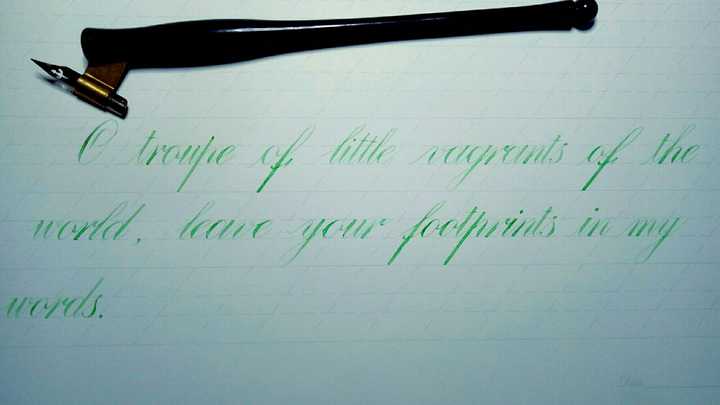 O troupe of little vagrants of the
world, leave your footprints in my
words.